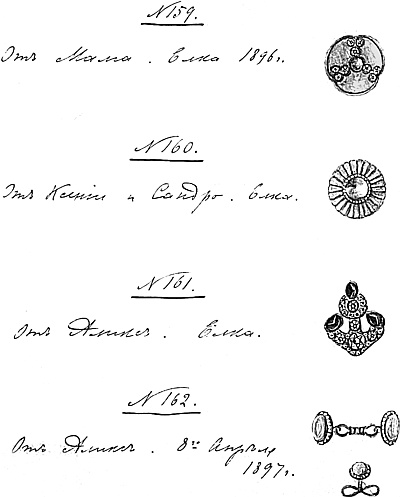 N 159.
Отъ Мама. Елка 1896 г.
N 160.
Отъ Ксеніи и Сандро. Елка.
N 161.
Отъ Аликсъ. Елка.
N 162.
Отъ Аликсъ. 8го Апрѣля
1897 г.